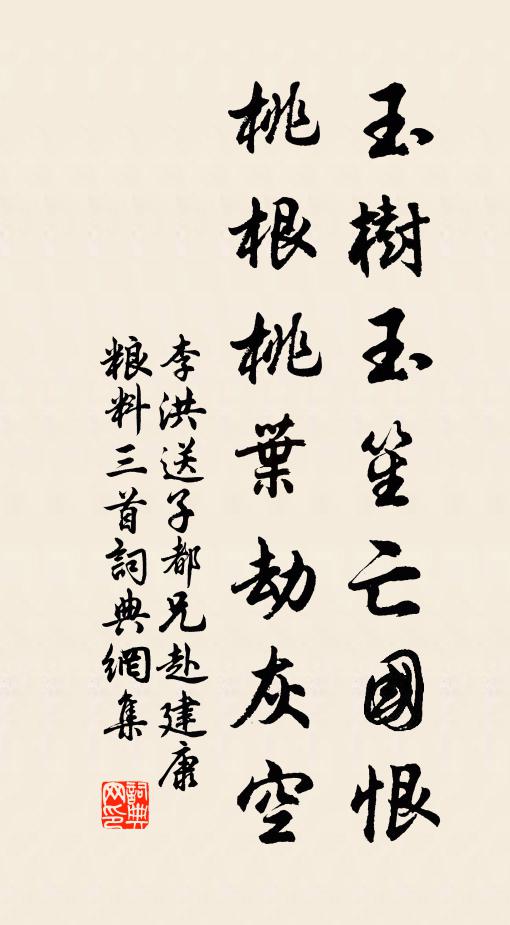 玉樹玉笙亡國恨
桃根桃葉劫灰空
李洪送子都兄赴建康
粮料三首詞典網集
詞典
网印